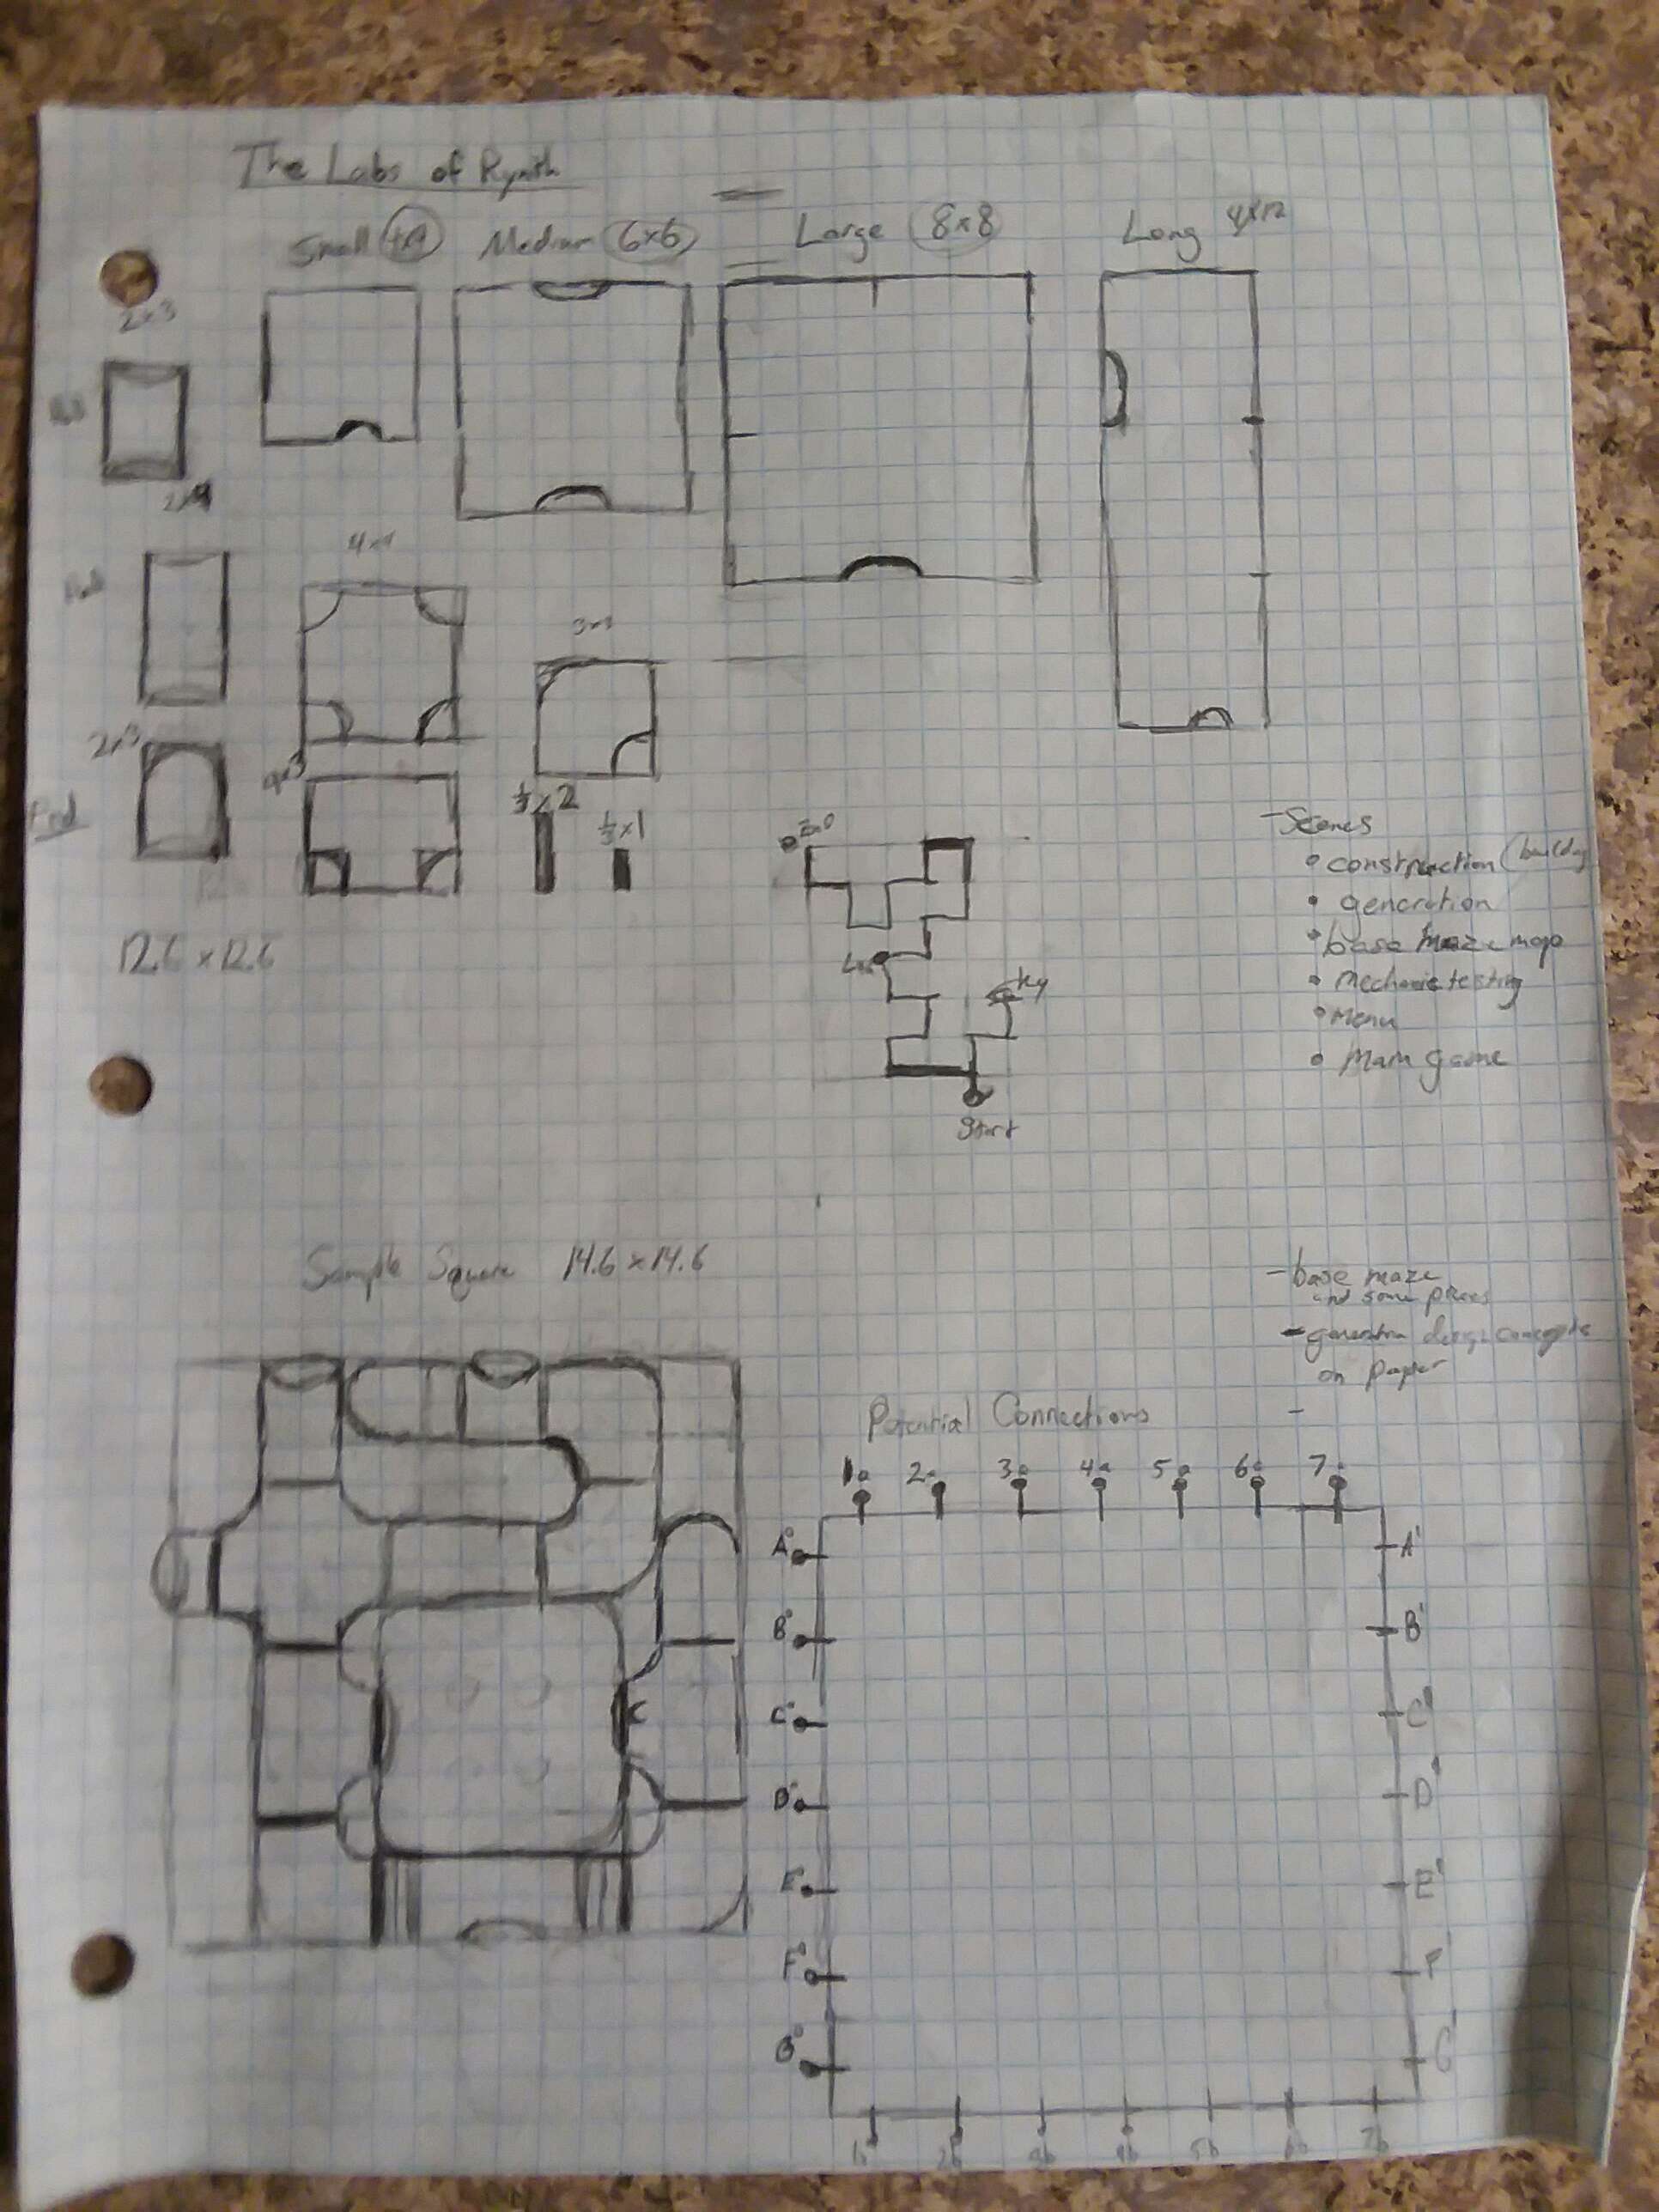 The Labs of Rynith
Small 4x4 Medium 6x6 Large 8x8 Long 4x12
2x3
2x4
4x4
3x3
2x3
4x3
End
1/3 x 2
1/3 x 1
12.6 x 12.6
End
Key
Start
- Scenes
• construction (building
• generation
• base maze map
• mechanic testing
• Menu
• Main game
Sample Square 14.6 x 14.6
- base maze
and some pieces
- generation design concepts
on paper
-
Potential Connections
1a 2a 3a 4a 5a 6a 7a
A A'
B B'
C C'
D D'
E E'
F F'
G G'
2b 4b 5b 6b 7b